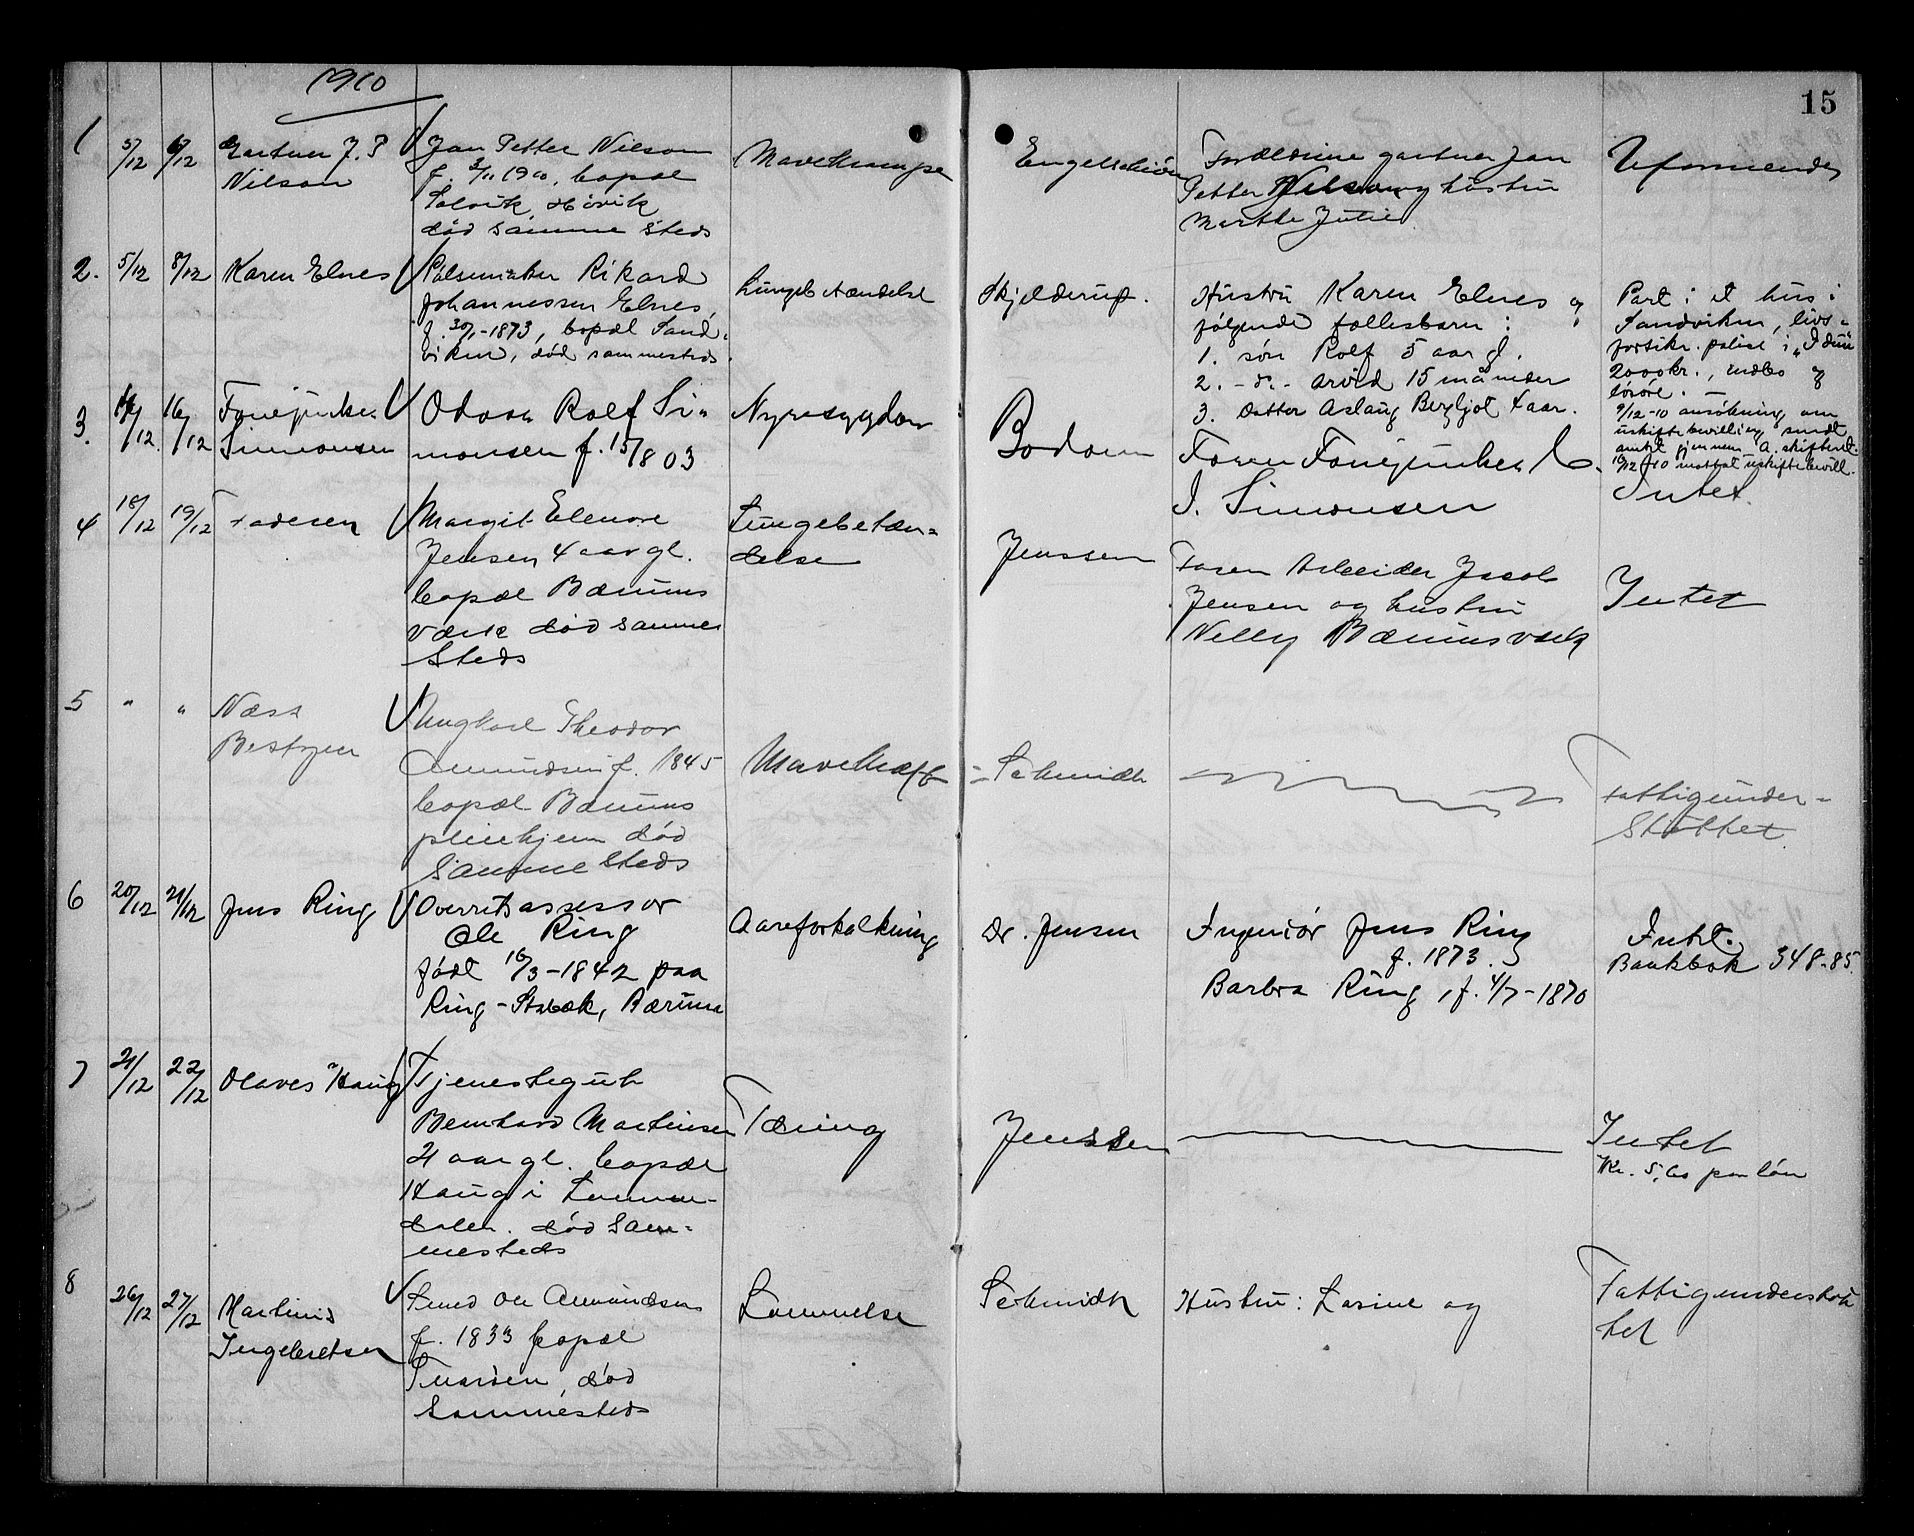 1910
15
1
5/12
6/12
Gartner J. P
Nilson
Jan Petter Nilson
f. 3/11 1900, bopæl
Solvik, Høvik
død samme steds
Mavekrampe
Engelschiøn
Forældrene gartner Jan
Petter Nilson og hustru
Marthe Julie
Uformuende
2.
5/12
8/12
Karen Elnes
Pølsemaker Rikard
Johannessen Elnes,
f. 30/1-1873, bopæl Sand-
viken, død sammesteds.
Lungebetændelse
Skjelderup.
Hustru Karen Elnes og
følgende fællesbarn:
1. søn Rolf 5 aar gl.
2. - do - Arvid 15 måneder
3. Datter Aslaug Bergljot 4 aar.
Part i et hus i
Sandviken, livs-
forsikr. police i "Idun"
2000 kr., indbo og
løsøre. -
9/12-10 ansökning om
uskiftebevilling sendt
amtet gjennem A. skifteret.
16/12-10 mottat uskiftebevill.
3.
16/12
Fanejunker
Simonsen
Odvar Rolf Si-
monsen f. 15/8 03
Nyresygdom
Bodom
Faren Fanejunker C.
J. Simonsen
Intet.
4
18/12
19/12
Faderen
Margit Elenore
Jensen 4 aar gl.
bopæl Bærums
Værk død samme
Steds
Lungebetæn-
delse
Jenssen
Faren Arbeider Jacob
Jensen og hustru
Nelly Bærumsværk
Intet
5
"
"
Næss
Bestyrer
Ungkarl Theodor
Amundsen f. 1845
bopæl Bærums
pleiehjem død
Samme Steds
Mavekræft
Schmidt
Fattigunder-
Støttet
6
20/12
21/12
Jens Ring
Overretsassessor
Ole Ring
født 16/3-1842 paa
Ring-Stabæk, Bærum
Aareforkalkning
Dr. Jensen
Ingeniør Jens Ring
f. 1873.
Barbra Ring, f. 4/7-1870
Intet.
Bankbok 348.85.
7
21/12
22/12
Olaves Haug
Tjenestegut
Bernhard Martinsen
21 aar gl. bopæl
Haug i Lommen-
dalen. død Sam-
mesteds
Tæring
Jenssen
Intet
Kr. 5,00 paa løn
8
26/12
27/12
Martinis
Ingebretsen
Smed Ole Amundsen
f. 1833 bopæl
død
Sammesteds
Lammelse
Schmidt
Hustru: Lovise og
Fattigunderstøt
tet